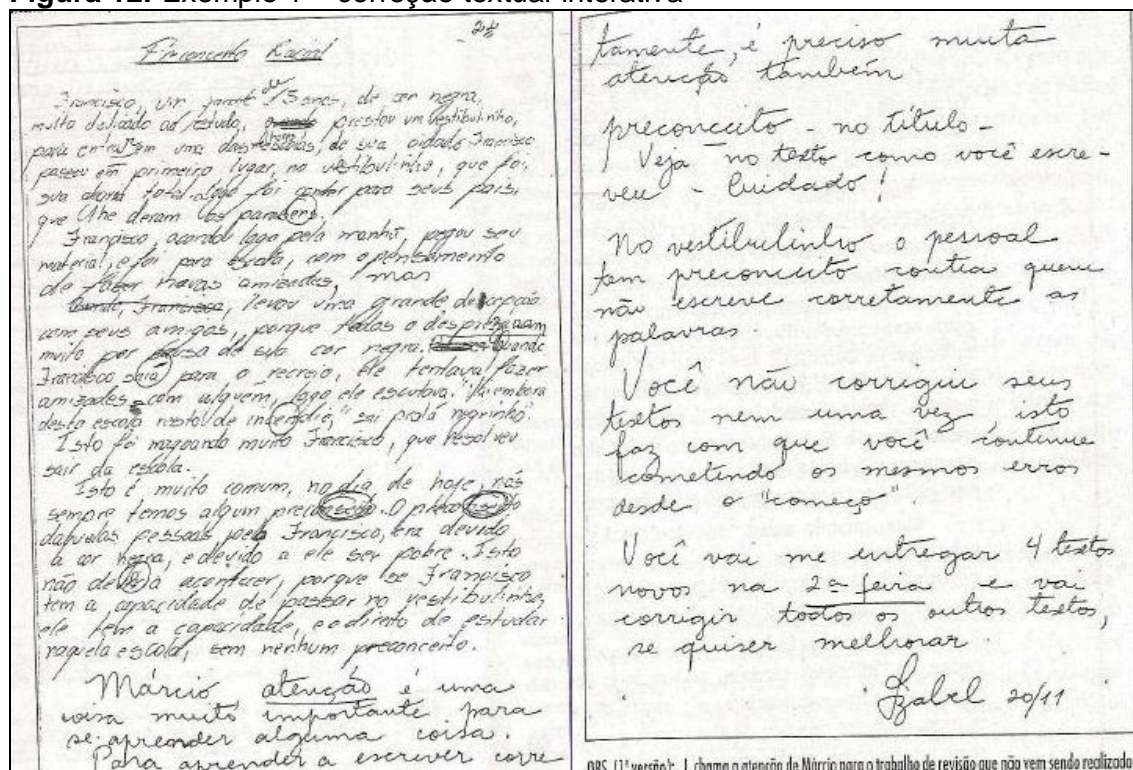 Figura 12: Exemplo 1 – correção textual interativa
Preconceito Racial
Francisco, um jovem de 15 anos, de cor negra,
muito dedicado ao estudo, prestou um vestibulinho,
para entrar em uma das escolas, de sua cidade Francisco
passou em primeiro lugar, no vestibulinho, que foi
sua alegria total. Logo foi contar para seus pais,
que lhe deram os parabens.
Francisco, acordou logo pela manhã, pegou seu
material, e foi para escola, com o pensamento
de fazer novas amizades, mas
Francisco, levou uma grande decepção
com seus amigos, porque todos o desprezavam
muito por causa de sua cor negra. Quando
Francisco saia para o recreio, ele tentava fazer
amizades com alguem, logo ele escutava. "Vai embora
desta escola resto de incendio," sai pra lá negrinho".
Isto foi magoando muito Francisco, que resolveu
sair da escola.
Isto é muito comum, no dia de hoje, nós
sempre temos algum preconseito. O preconseito
daquelas pessoas pelo Francisco, era devido
a cor negra, e devido a ele ser pobre. Isto
não deveria acontecer, porque se Francisco
tem a capacidade de passar no vestibulinho,
ele tem a capacidade, e o direito de estudar
naquela escola, sem nenhum preconceito.
Márcio atenção é uma
coisa muito importante para
se aprender alguma coisa.
Para aprender a escrever corre
tamente, é preciso muita
atenção também
preconceito - no título -
Veja no texto como você escre-
veu - Cuidado!
No vestibulinho o pessoal
tem preconceito contra quem
não escreve corretamente as
palavras.
Você não corrigiu seus
textos nem uma vez isto
faz com que você continue
cometendo os mesmos erros
desde o "começo".
Você vai me entregar 4 textos
novos na 2ª feira e vai
corrigir todos os outros textos,
se quiser melhorar.
Izabel 20/11
OBS. (1ª versão): I. chama a atenção de Márcio para o trabalho de revisão que não vem sendo realizado